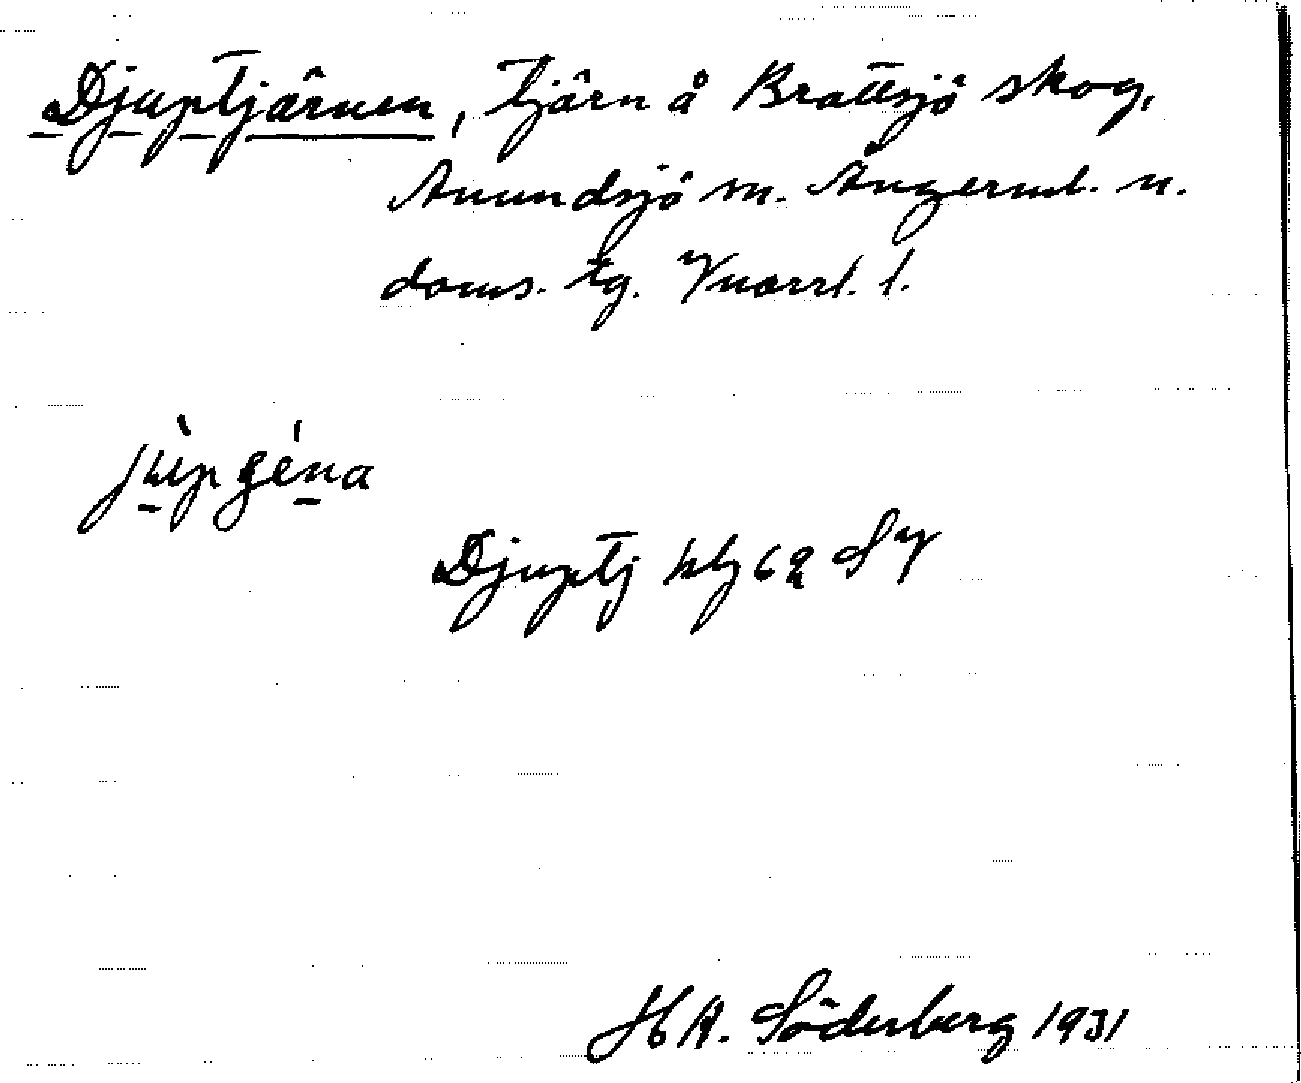 Djuptjärnen, tjärn å Brattsjö skog,
Anundsjö sn. Ångerml. n.
doms. tg. Vnorrl. l.
jùpgéna
Djuptj klg 62 SV
HA. Söderberg 1931